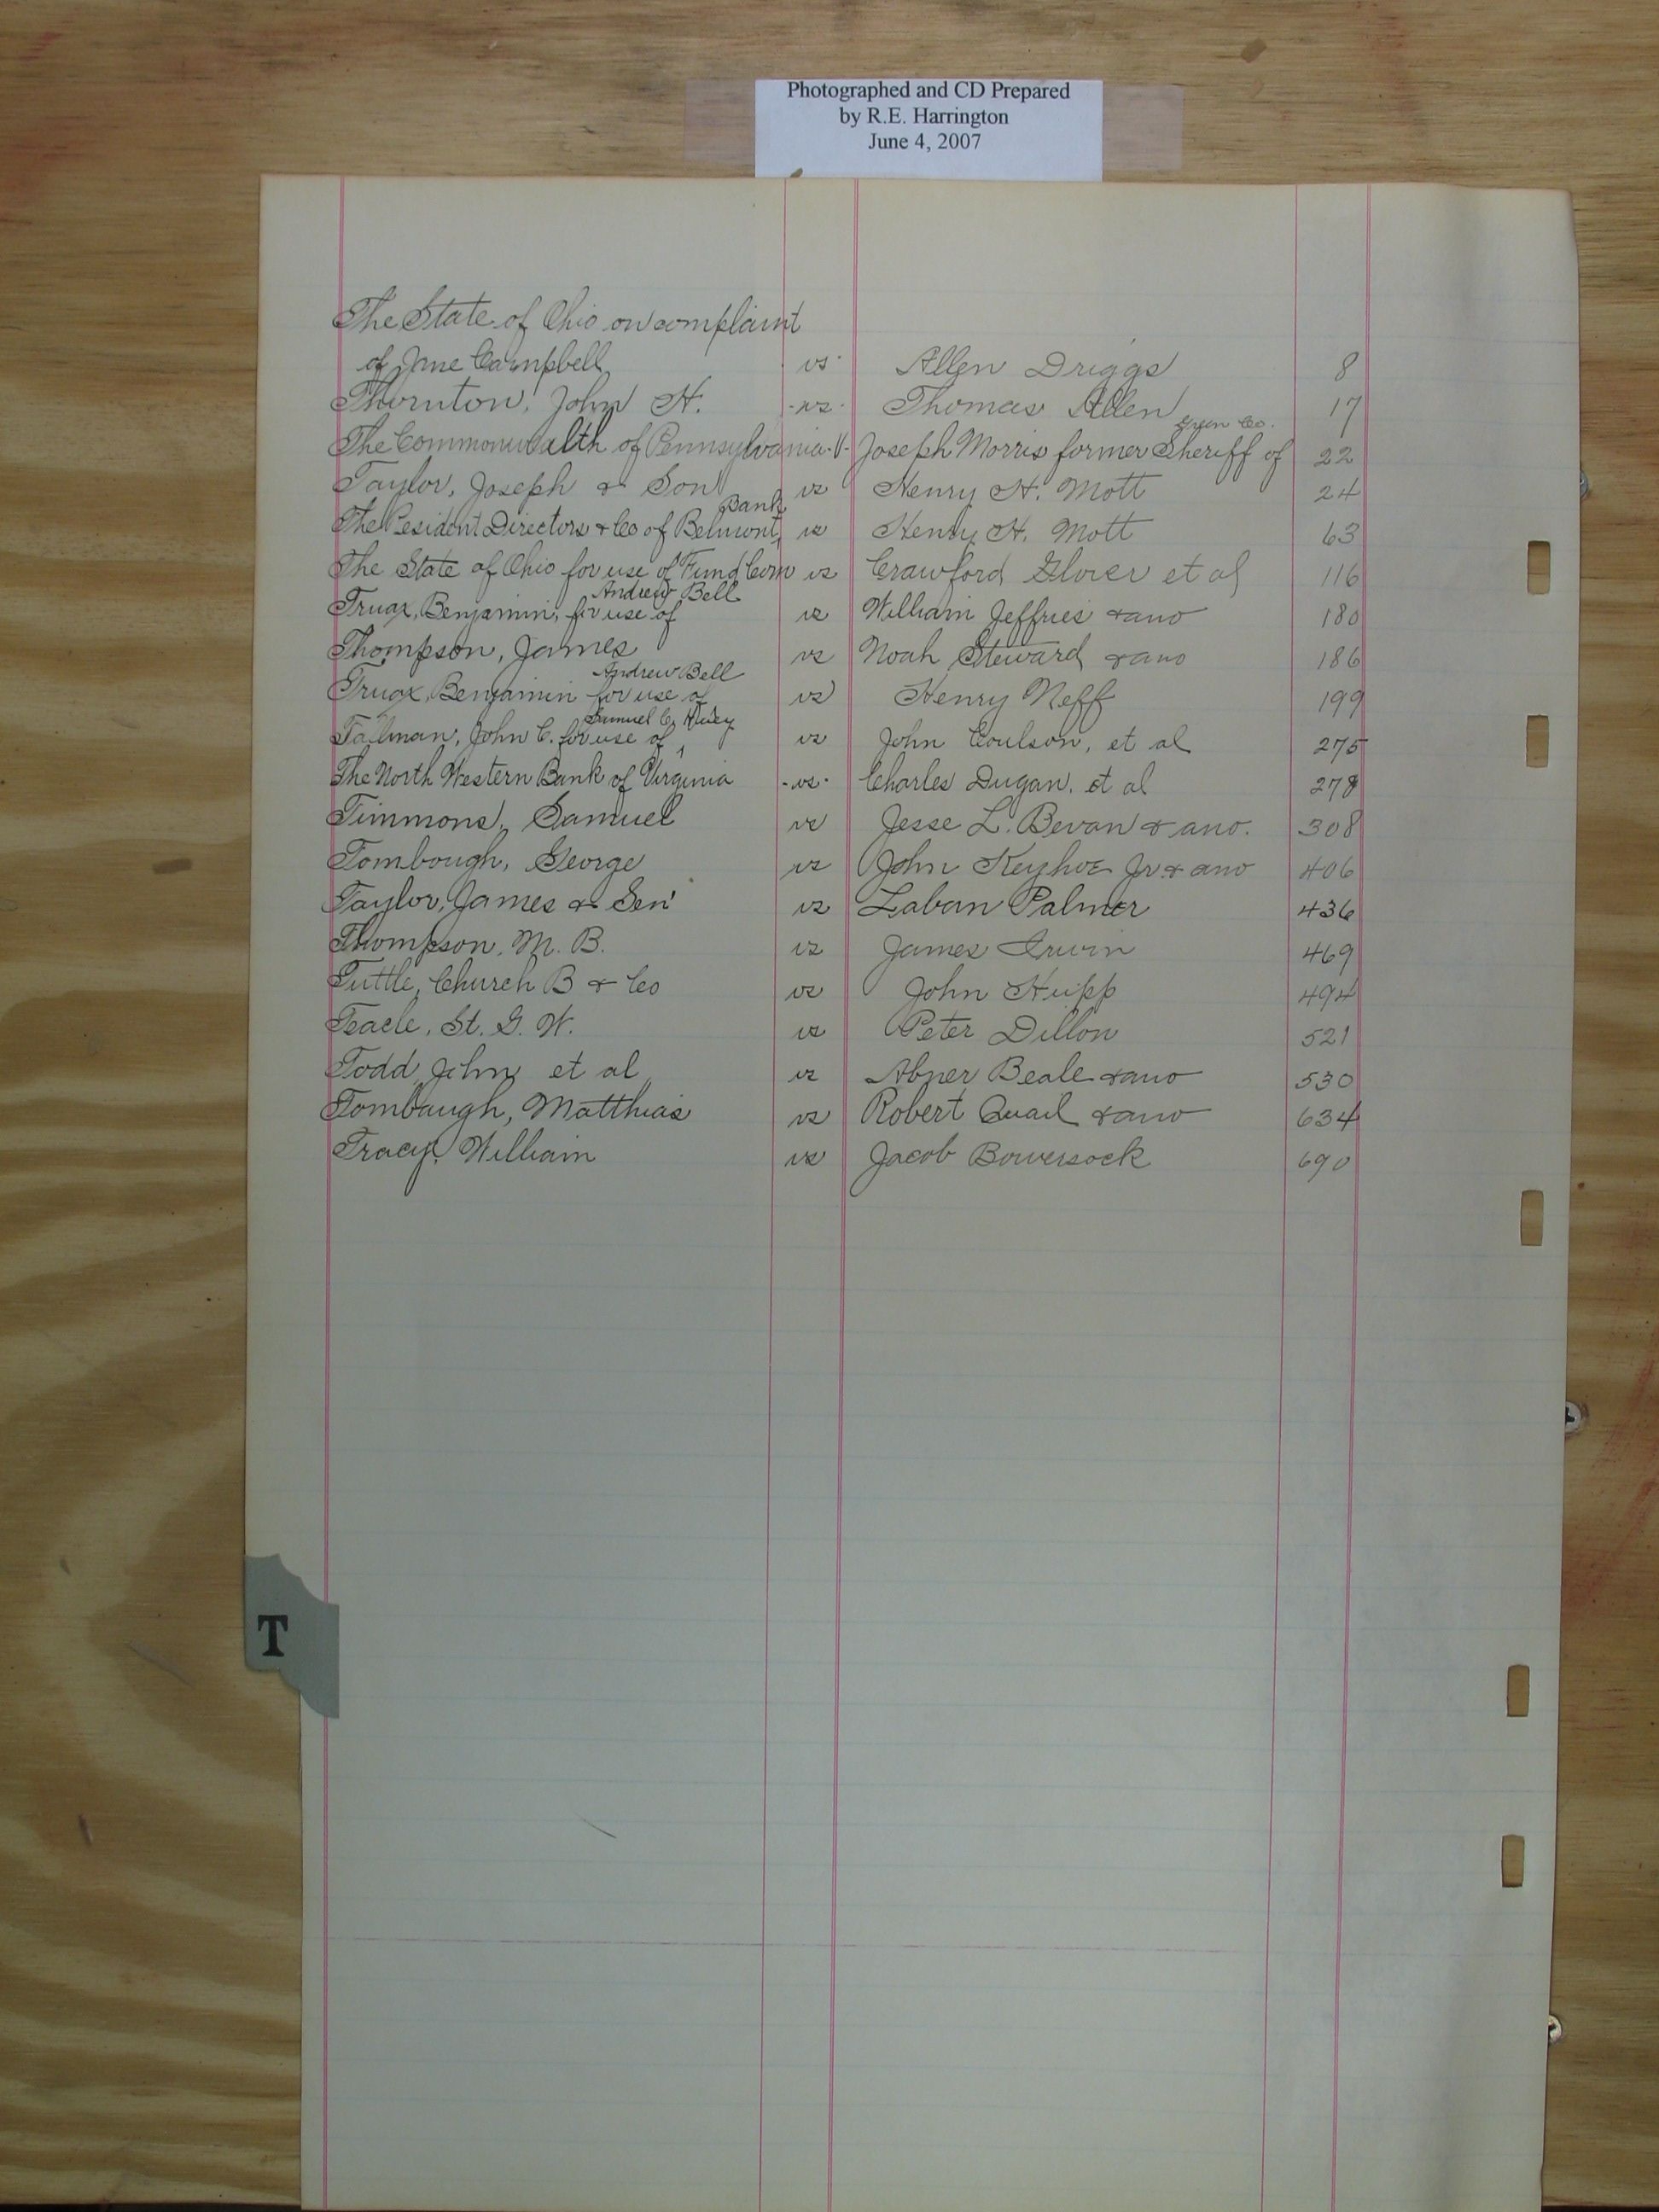 Photographed and CD Prepared
by R.E. Harrington
June 4, 2007
The State of Ohio on complaint
of Jane Campbell vs Allen Driggs 8
Thornton, John H. -vs- Thomas Allen 17
Green Co.
The Commonwealth of Pennsylvania -V- Joseph Morris former Sheriff of 22
Taylor, Joseph & Son vs Henry H. Mott 24
Bank
The Pesident Directors & Co of Belmont, vs Henry H. Mott 63
The State of Ohio for use of Fund Com vs Crawford Glover et al 116
Andrew Bell
Truax, Benjamin, for use of vs William Jeffries & ano 180
Thompson, James vs Noah Steward & ano 186
Andrew Bell
Truax, Benjamin for use of vs Henry Neff 199
Samuel C.
Tallman, John C. for use of vs John Coulson, et al 275
The North Western Bank of Virginia -vs- Charles Dugan, et al 278
Timmons, Samuel vs Jesse L. Bevan & ano. 308
Tombough, George vs John Keyhoe Jr & ano 406
Taylor, James & Sen vs Laban Palmer 436
Thompson, M. B. vs James Irwin 469
Tuttle, Church B & Co vs John Hupp 494
Teacle, St. G. W. vs Peter Dillon 521
Todd, John et al vs Abner Beale & ano 530
Tombaugh, Matthias vs Robert Quail & ano 634
Tracy, William vs Jacob Bowersock 690
T